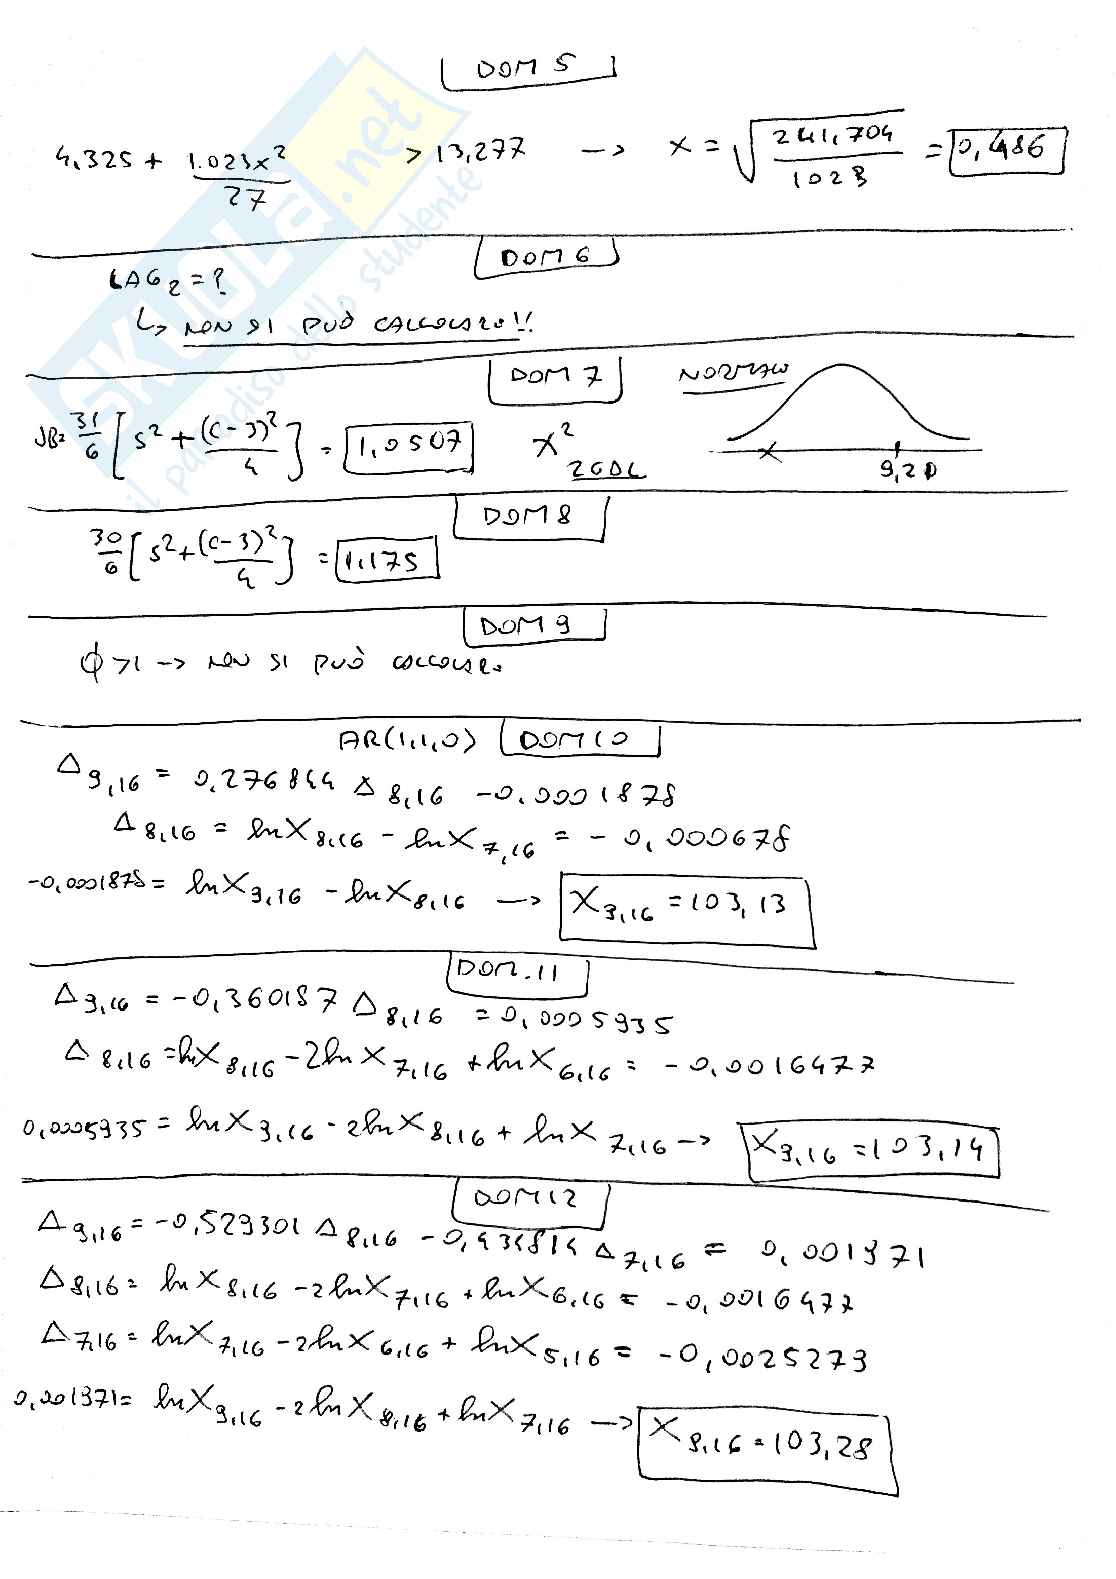 DOM 5
4,325 + 1.023x² / 27 > 13,277 → x = √(241,704 / 1023) = 0,486
DOM 6
LAG₂ = ?
↳ NON SI PUÒ CALCOLARE!!
DOM 7
NORMALE
JB= 31/6 [S² + (C-3)²/4] = 1,0507 X² 2GDL
9,21
DOM 8
30/6 [S² + (C-3)²/4] = 1,175
DOM 9
ϕ>1 → NON SI PUÒ CALCOLARE
AR(1,1,0) DOM 10
Δ9,16 = 0,276844 Δ8,16 -0,0001878
Δ8,16 = lnX8,16 - lnX7,16 = -0,000678
-0,0001878 = lnX9,16 - lnX8,16 → X9,16 = 103,13
DOM.11
Δ9,16 = -0,360187 Δ8,16 = 0,0005935
Δ8,16 = lnX8,16 - 2lnX7,16 + lnX6,16 = -0,0016477
0,0005935 = lnX9,16 - 2lnX8,16 + lnX7,16 → X9,16 = 103,14
DOM 12
Δ9,16 = -0,529301 Δ8,16 -0,434814 Δ7,16 = 0,001971
Δ8,16 = lnX8,16 - 2lnX7,16 + lnX6,16 = -0,0016477
Δ7,16 = lnX7,16 - 2lnX6,16 + lnX5,16 = -0,0025273
0,001971 = lnX9,16 - 2lnX8,16 + lnX7,16 → X9,16 = 103,28
SKUOLA.net
il paradiso dello studente